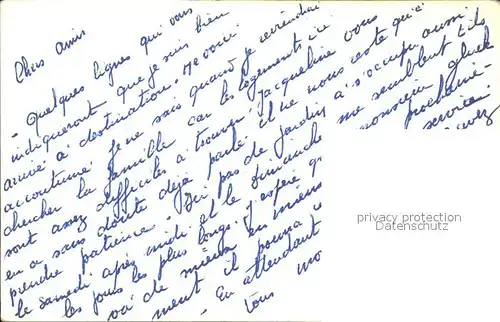 Chers amis
- Quelques lignes qui vous
indiqueront que je suis bien
arrivé à destination. Me voici
accoutumé. Je ne sais quand je reviendrai
chercher la famille car les logements ici
sont assez difficiles à trouver. Jacqueline vous
en a sans doute déjà parlé il ne nous reste qu'à
prendre patience - Ici pas de jardin à s'occuper aussi
le samedi après midi et le Dimanche me semblent t'ils
les jours les plus longs. J'espère q monsieur Gluck
va de mieux en mieux prochaine-
ment il pourra service.
- En attendant vez
tous mo
privacy protection
Datenschutz